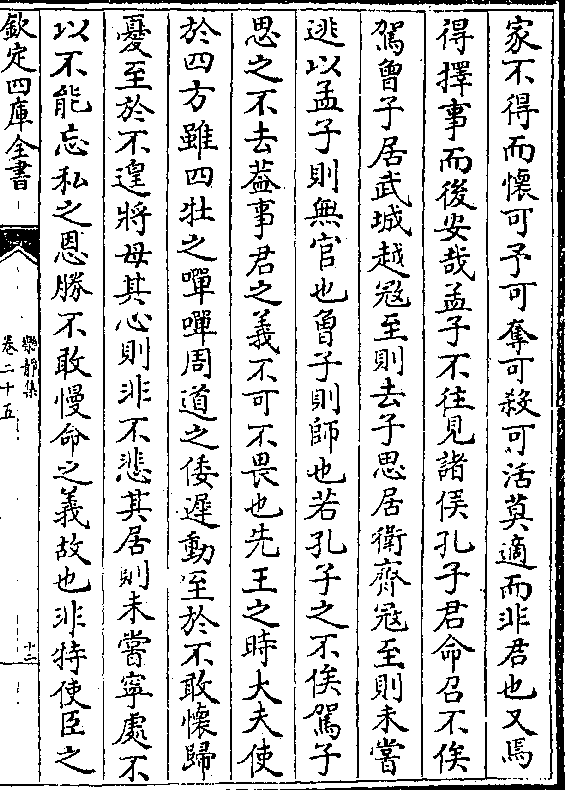 家不得而懷可予可奪可殺可活莫適而非君也又焉
得擇事而後安哉孟子不往見諸侯孔子君命召不俟
駕曾子居武城越冦至則去子思居衛齊冦至則未嘗
逃以孟子則無官也曾子則師也若孔子之不俟駕子
思之不去葢事君之義不可不畏也先王之時大夫使
於四方雖四牡之嘽嘽周道之倭遲動至於不敢懷歸
憂至於不遑將母其心則非不悲其居則未嘗寧處不
以不能忘私之恩勝不敢慢命之義故也非特使臣之
欽定四庫全書
樂靜集
卷二十五
十二